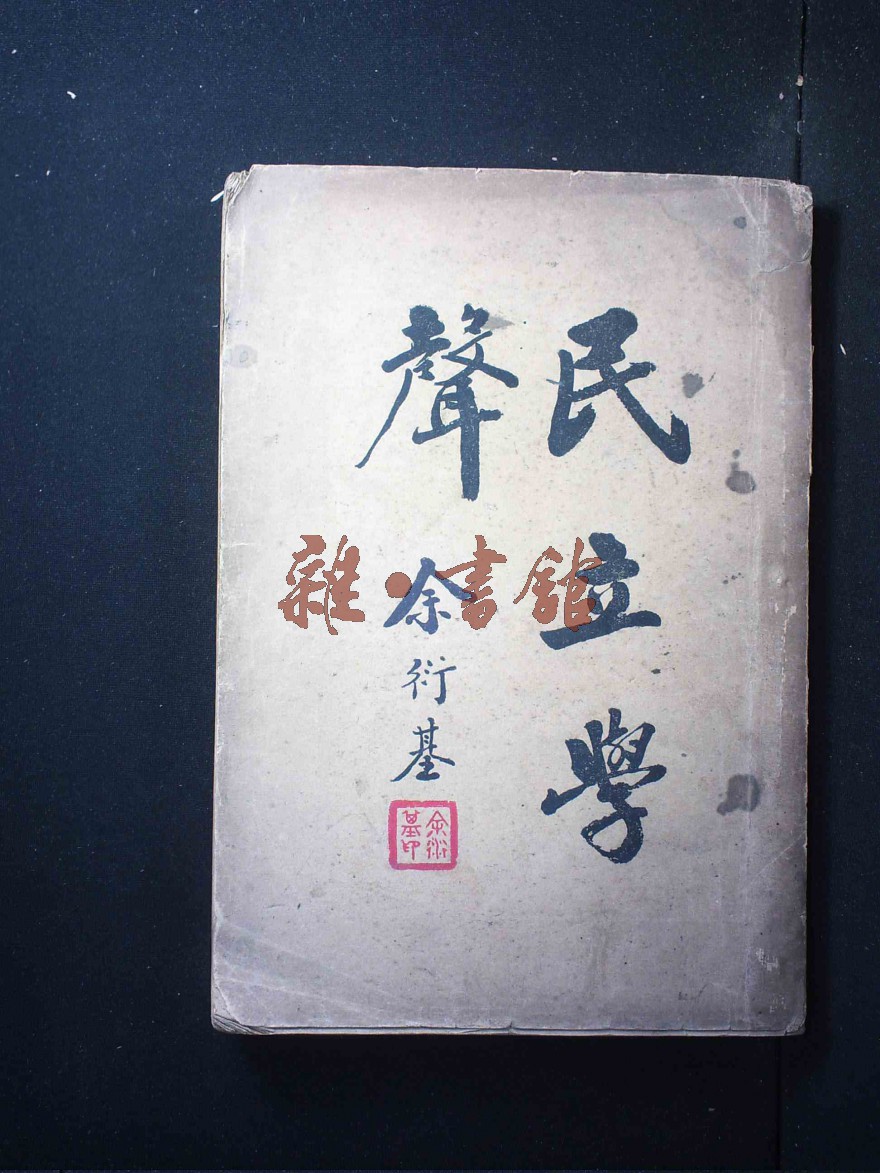 民立學
聲
余衍基
余衍
基印
雜·書館